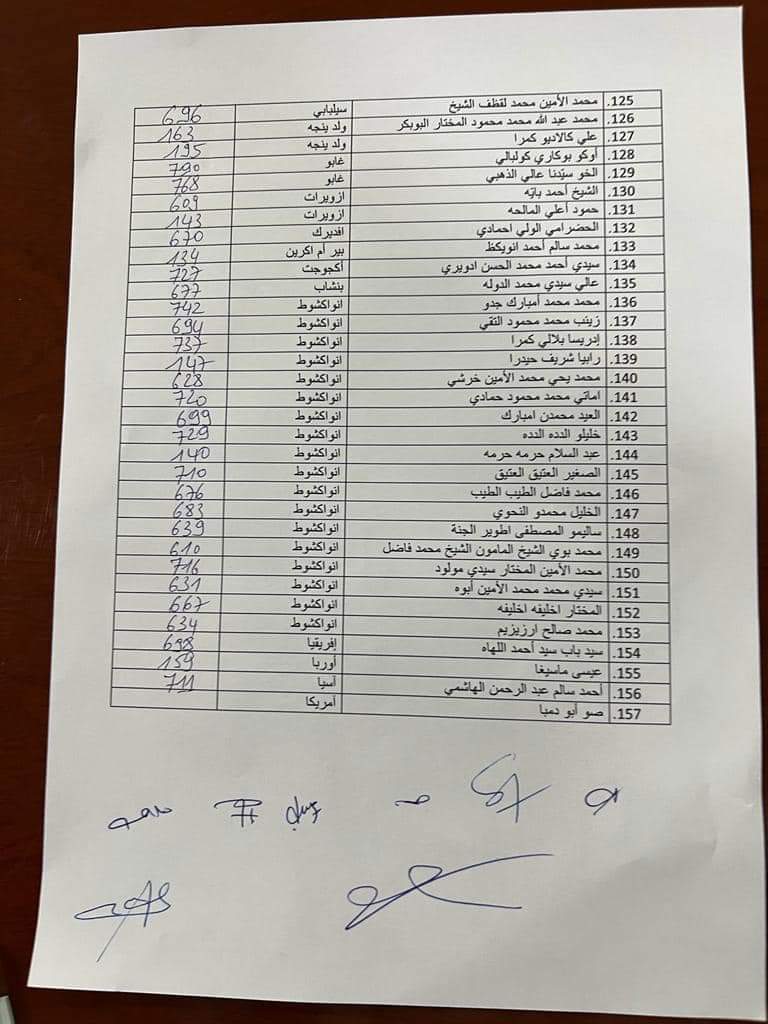 125. محمد الأمين محمد لقظف الشيخ سيلبابي 696
126. محمد عبد الله محمد محمود المختار البوبكر ولد ينجه 163
127. علي كالاديو كمرا ولد ينجه 195
128. أوكو بوكاري كوليالي غابو 790
129. الخو سيّدنا عالي الذهبي غابو 768
130. الشيخ أحمد بايّه ازويرات 609
131. حمود أعلي المالحه ازويرات 143
132. الحضرامي الولي احمادي افديرك 670
133. محمد سالم أحمد انويكظ بير أم اكرين 134
134. سيدي أحمد محمد الحسن ادويري أكجوجت 727
135. عالي سيدي محمد الدوله بنشاب 677
136. محمد محمد أمبارك جدو انواكشوط 742
137. زينب محمد محمود التقي انواكشوط 694
138. إدريسا بلالي كمرا انواكشوط 737
139. رابيا شريف حيدرا انواكشوط 147
140. محمد يحي محمد الأمين خرشي انواكشوط 628
141. اماتي محمد محمود حمادي انواكشوط 720
142. العيد محمدن امبارك انواكشوط 699
143. خليلو الدده الدده انواكشوط 729
144. عبد السلام حرمه حرمه انواكشوط 140
145. الصغير العتيق العتيق انواكشوط 710
146. محمد فاضل الطيب الطيب انواكشوط 676
147. الخليل محمدو النحوي انواكشوط 683
148. ساليمو المصطفى اطوير الجنة انواكشوط 639
149. محمد بوي الشيخ المامون الشيخ محمد فاضل انواكشوط 610
150. محمد الأمين المختار سيدي مولود انواكشوط 716
151. سيدي محمد محمد الأمين أبوه انواكشوط 631
152. المختار اخليفه اخليفه انواكشوط 667
153. محمد صالح ارزيزيم انواكشوط 634
154. سيد باب سيد أحمد اللهاه إفريقيا 698
155. عيسى ماسيغا أوربا 159
156. أحمد سالم عبد الرحمن الهاشمي آسيا 711
157. صو أبو دمبا أمريكا